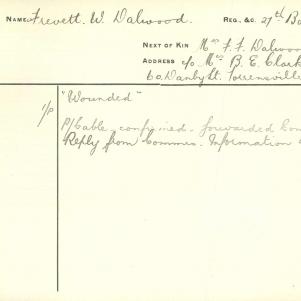 NAME Trevett. W. Dalwood. REG. &c. 27th Ba
NEXT OF KIN Mrs F. F. Dalwoo
ADDRESS c/o Mrs B. E. Clark
6a Danby St. Torrensville
"Wounded"
P/Cable confirmed. forwarded
Reply from Commrs. Information